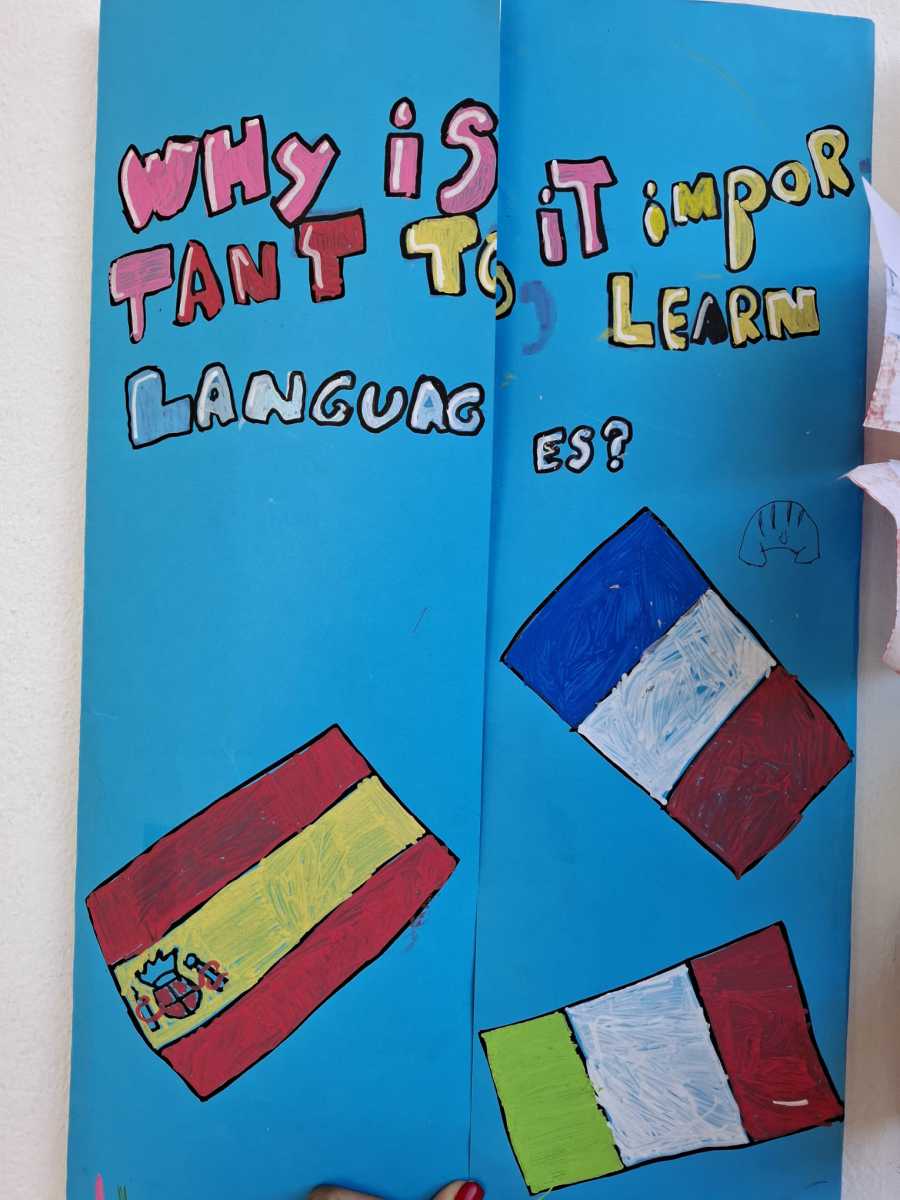 WHy iS iT imPOR
TANT TO LEARN
LANGUAG ES?